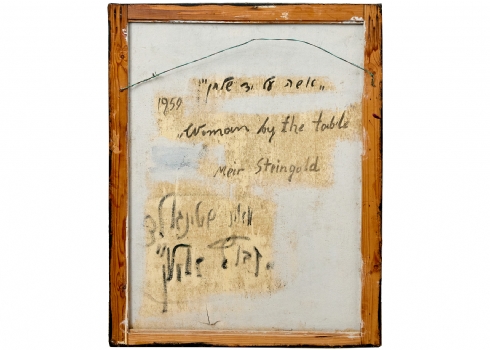 „אשה על יד שלחן"
1959
„Woman by the table
Meir Steingold
מאיר שטינגולד